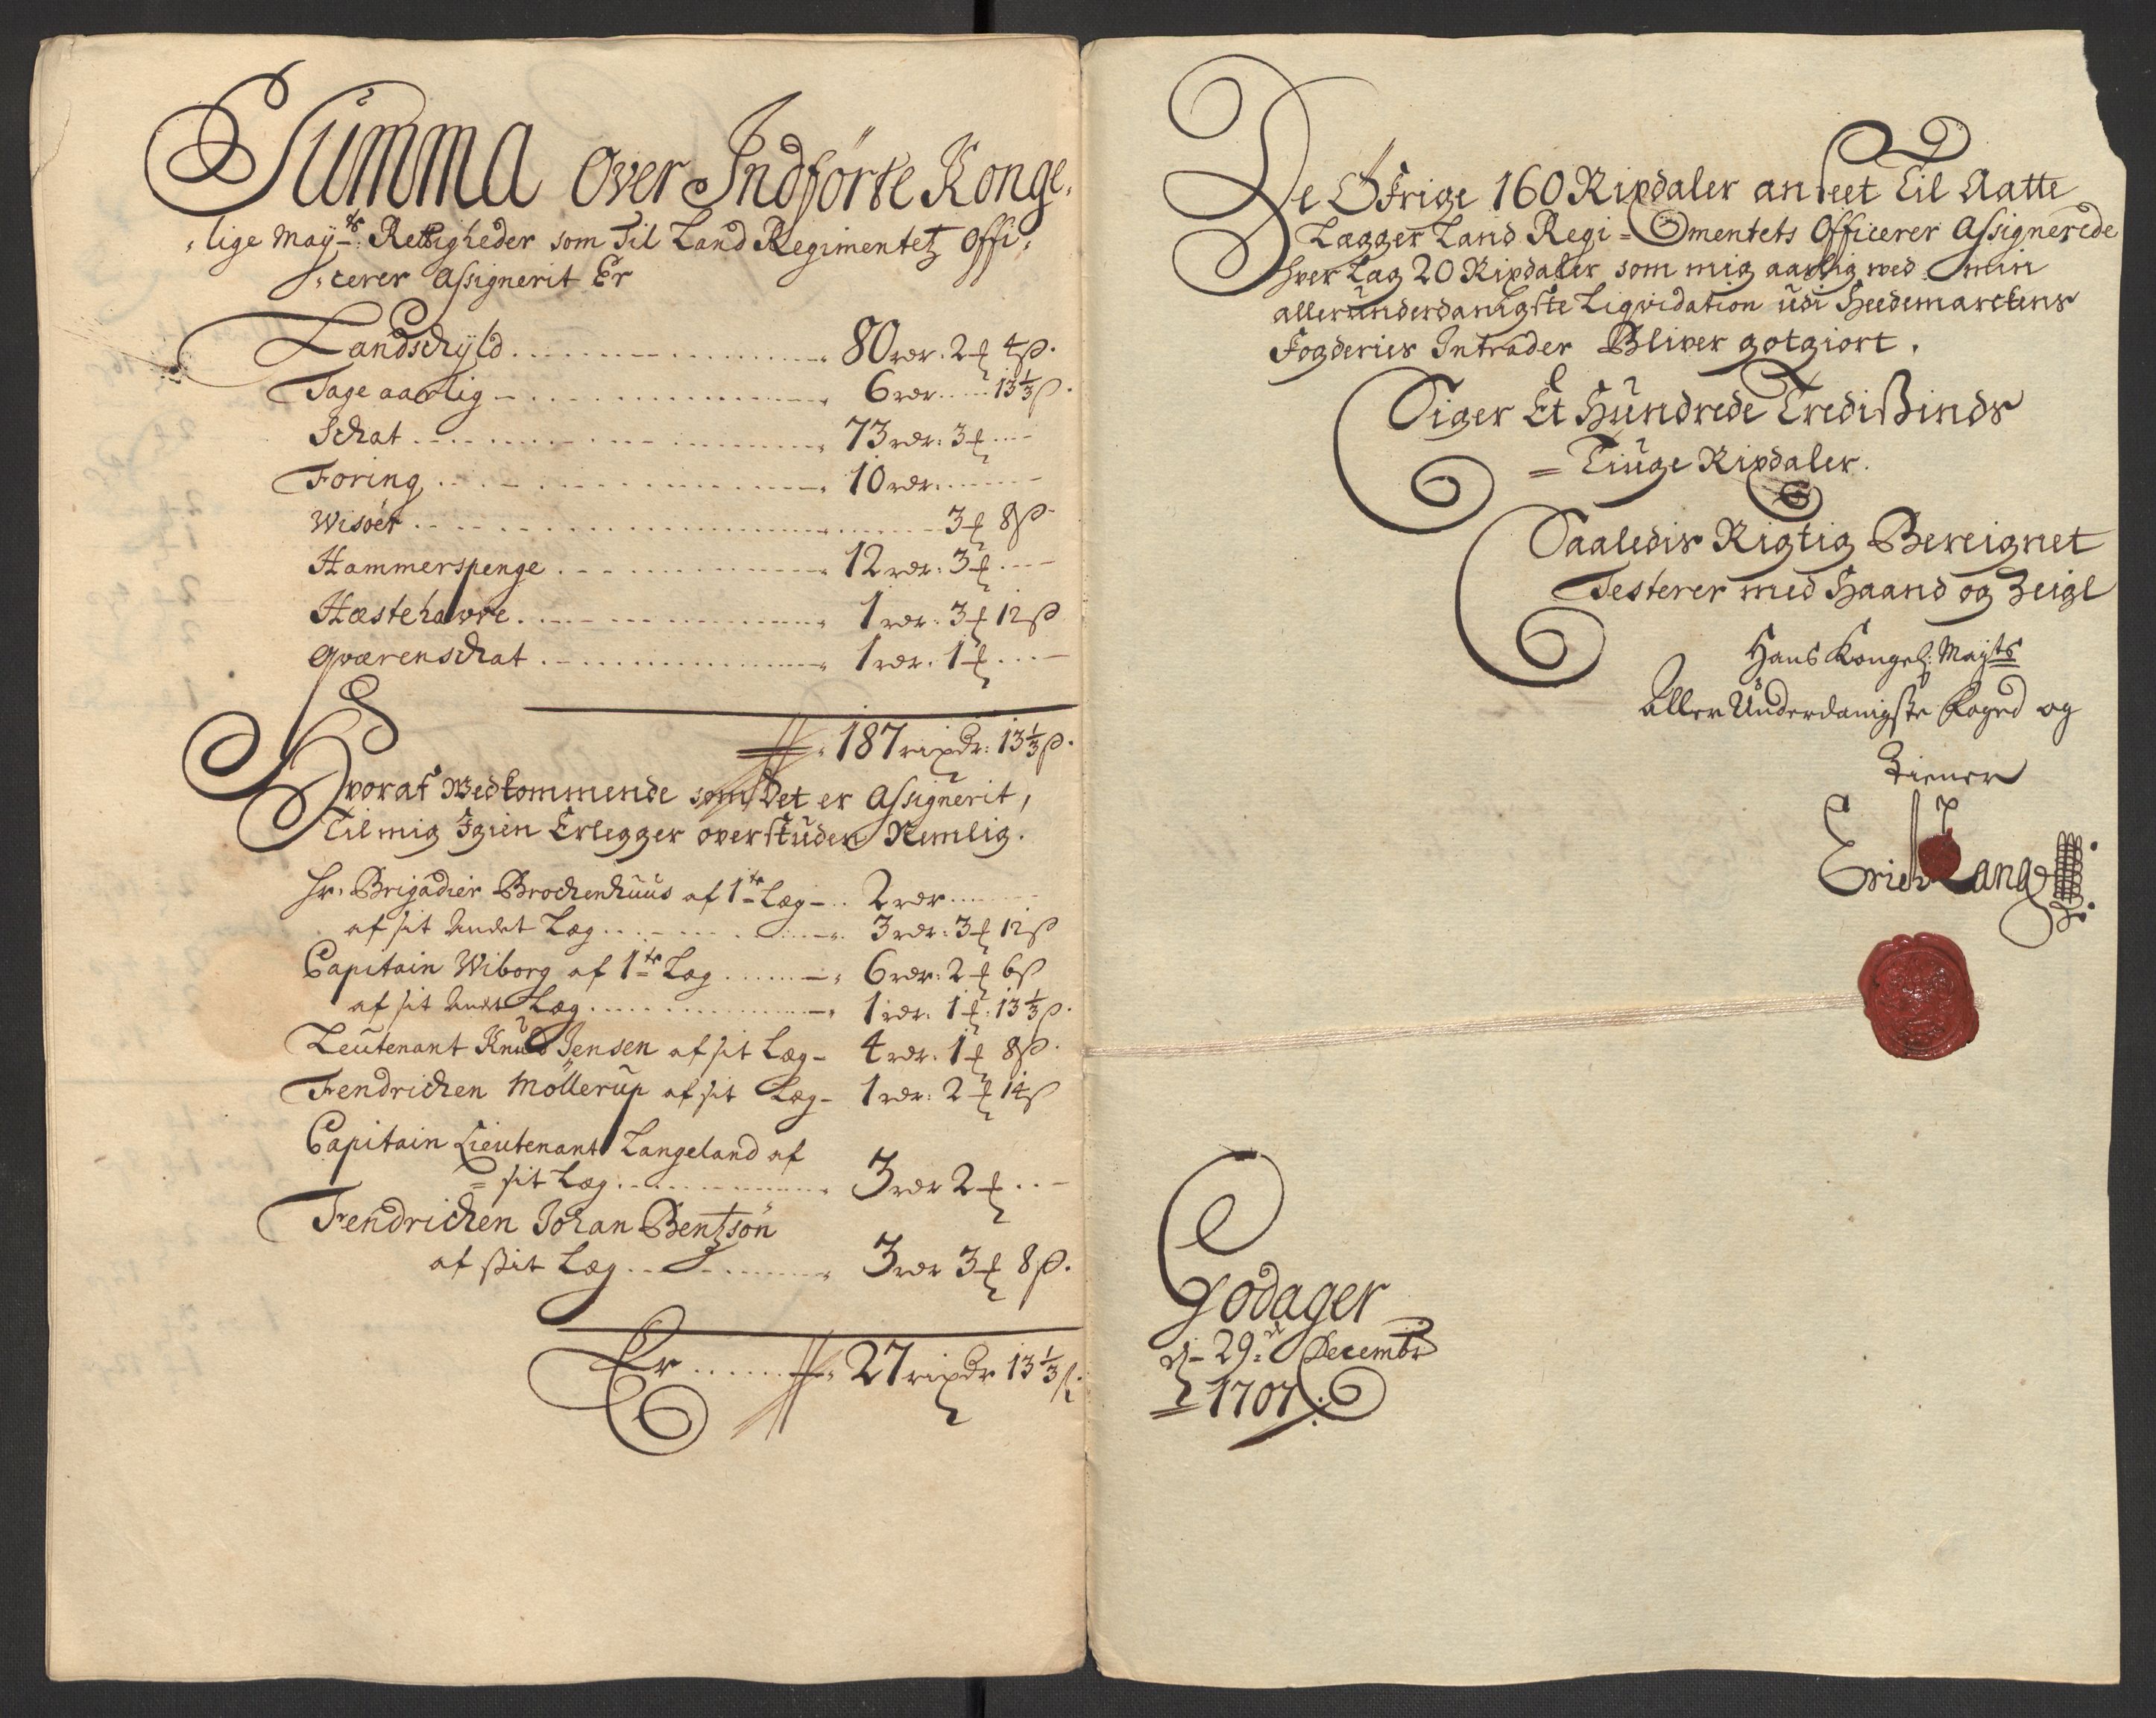 Summa over Indførte Konge,
,lige Maÿts: Rettigheder som Til Land Regimentetz offi,
,cerer Assignerit Er
Landschÿld 80 rdr. 2 ꝑ 4 ß.
Tage aarlig 6 rdr. 13⅓ ß.
Schat 73 rdr: 3 ꝑ
Foring 10 rdr.
Wisøer 3 ꝑ 8 ß
Hammerspenge 12 rdr: 3 ꝑ
Hæstehavre 1 rdr. 3 ꝑ 12 ß
Qværenschat 1 rdr. 1 ꝑ
187 rixdr: 13⅓ ß.
Hvoraf Wedkommende som det er Assignerit,
Til mig Igien Erlegger overskuden Nemlig.
Hr. Brigadier Brochenhuus af 1te Læg 2 rdr
af sit Andet Læg 3 rdr: 3 ꝑ 12 ß
Capitain Wiborg af 1te Læg 6 rdr: 2 ꝑ 6 ß
af sit Andet Læg 1 rdr. 1 ꝑ. 13⅓ ß.
Leutenant Knud Jensen af sit Læg 4 rdr. 1 ꝑ 8 ß.
Fendrichen Möllerup af sit Læg 1 rdr: 2 ꝑ 14 ß
Capitain Lieutenant Langeland af
= sit Læg 3 rdr 2 ꝑ
Fendrichen Johan Bentzön
af ssit Læg 3 rdr 3 ꝑ 8 ß.
Er 27 rixdr 13⅓ ß.
De Øfrige 160 Rixdaler anseet Til Aatte
Lægger Land Regi=mentets Officerer Assignerede
hver Læg 20 Rixdaler som mig aarlig ved min
allerunderdanigste Liqvidation udi Heedemarckens
Fogderies Intrader Bliver gotgiort.
Siger Et Hundrede Tredissinds
= Tiuge Rixdaler.
Saaledis Rigtig Bereignet
Testerer med Haand og Zeigl
Hans Kongel: Mayts
Aller Underdanigste Foged og
Tiener
Erich Lang
Godager
d. 29: Decembr
1707.